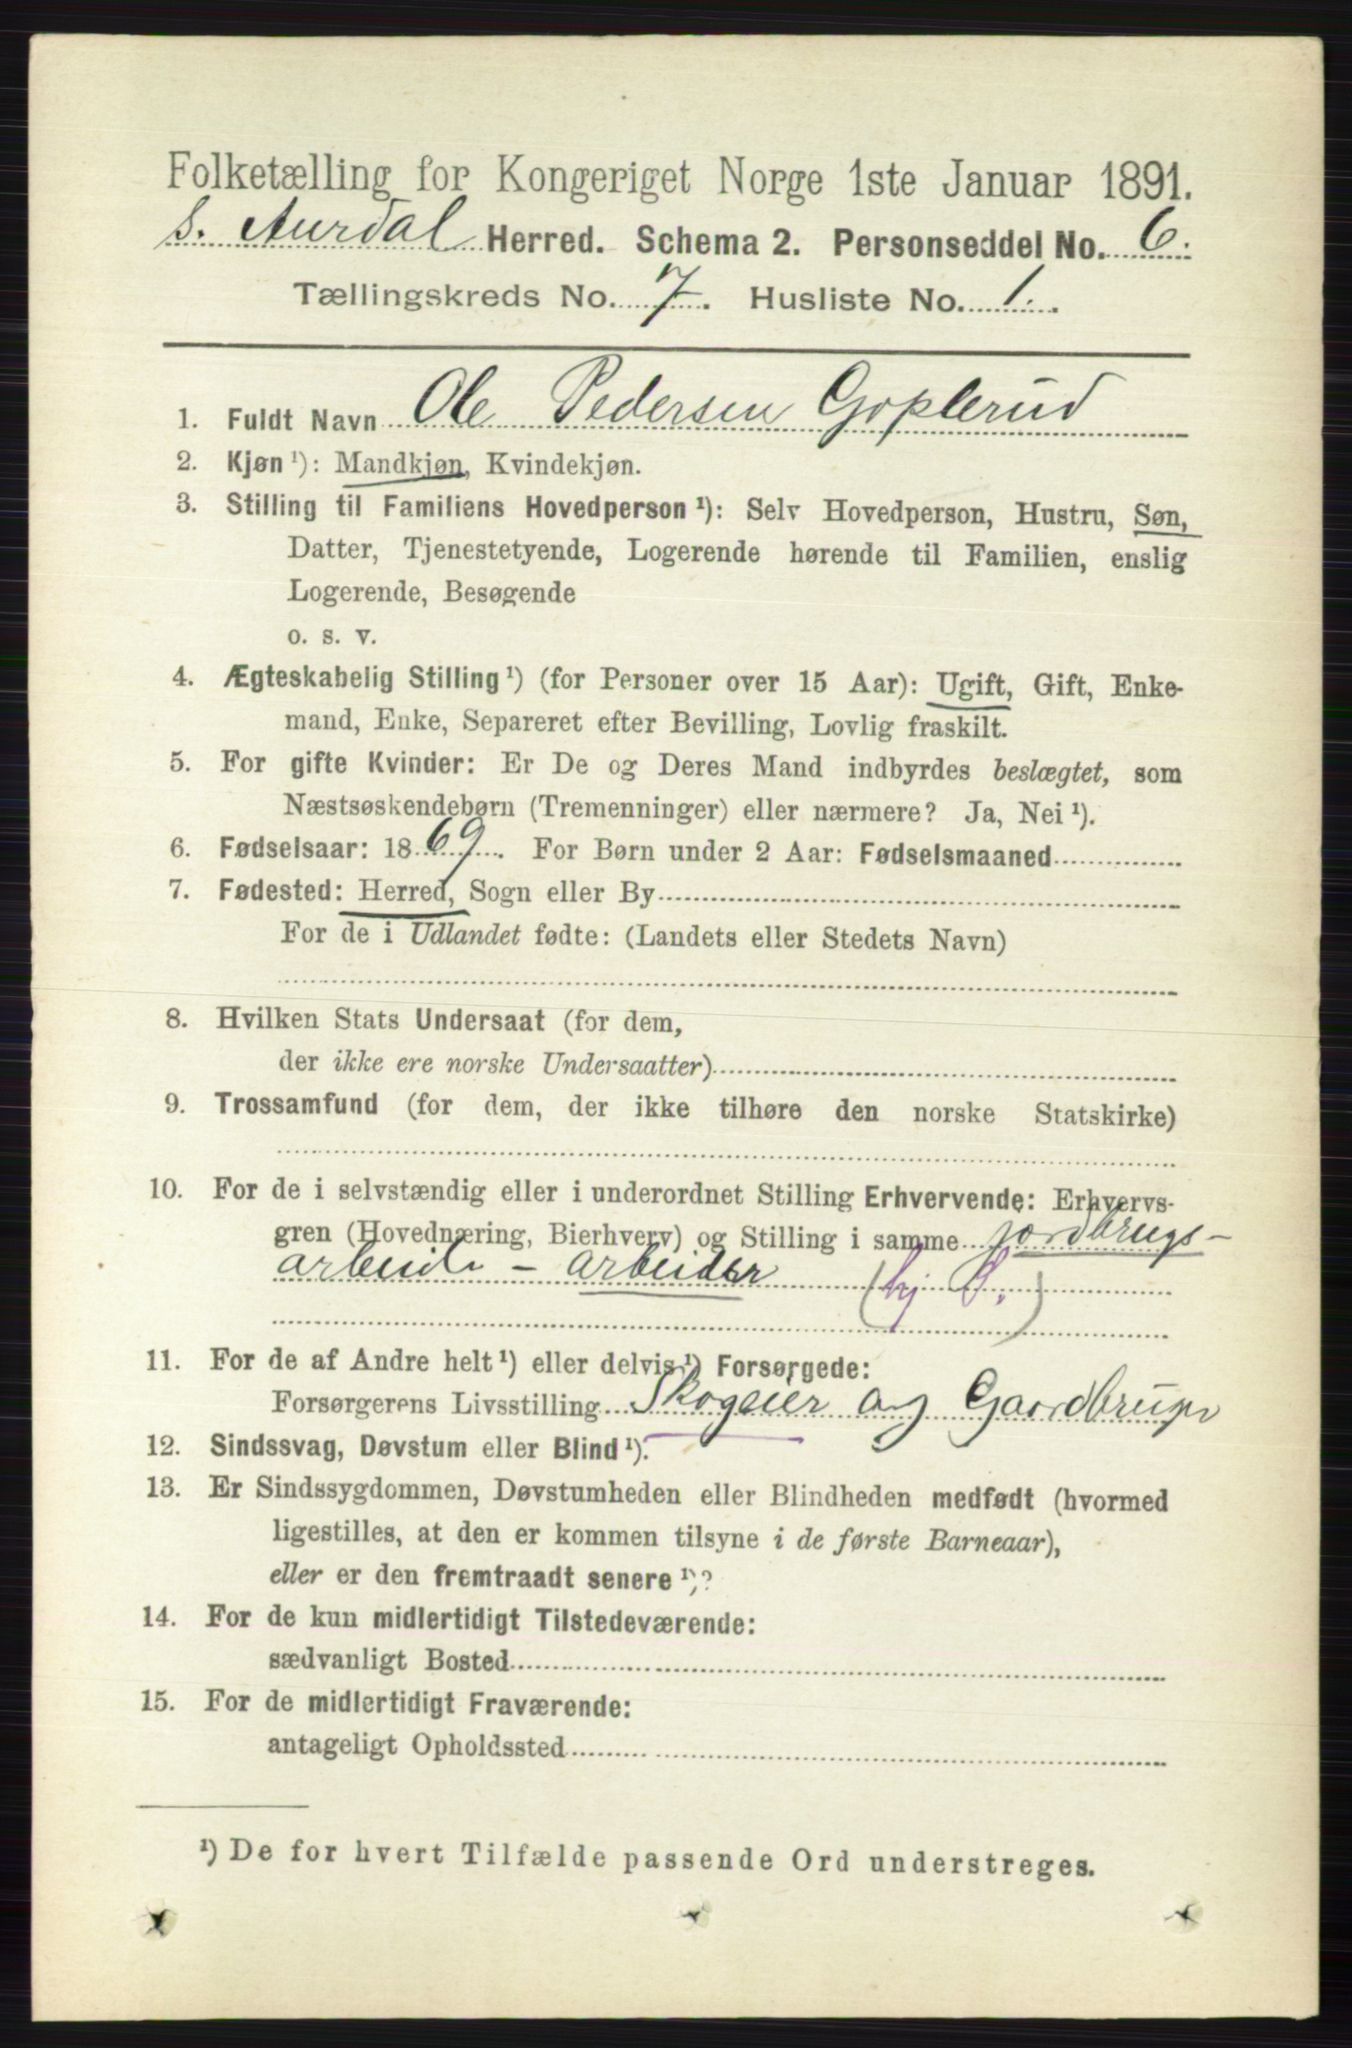 Folketælling for Kongeriget Norge 1ste Januar 1891.
S. Aurdal Herred. Schema 2. Personseddel No. 6.
Tællingskreds No. 7. Husliste No. 1.
1. Fuldt Navn Ole Pedersen Goplerud
2. Kjøn ¹): Mandkjøn, Kvindekjøn.
3. Stilling til Familiens Hovedperson ¹): Selv Hovedperson, Hustru, Søn,
Datter, Tjenestetyende, Logerende hørende til Familien, enslig
Logerende, Besøgende
o. s. v.
4. Ægteskabelig Stilling ¹) (for Personer over 15 Aar): Ugift, Gift, Enke-
mand, Enke, Separeret efter Bevilling, Lovlig fraskilt.
5. For gifte Kvinder: Er De og Deres Mand indbyrdes beslægtet, som
Næstsøskendebørn (Tremenninger) eller nærmere? Ja, Nei ¹).
6. Fødselsaar: 1869. For Børn under 2 Aar: Fødselsmaaned
7. Fødested: Herred, Sogn eller By
For de i Udlandet fødte: (Landets eller Stedets Navn)
8. Hvilken Stats Undersaat (for dem,
der ikke ere norske Undersaatter)
9. Trossamfund (for dem, der ikke tilhøre den norske Statskirke)
10. For de i selvstændig eller i underordnet Stilling Erhvervende: Erhvervs-
gren (Hovednæring, Bierhverv) og Stilling i samme jordbrugs-
arbeide - arbeider (hj S.)
11. For de af Andre helt ¹) eller delvis ¹) Forsørgede:
Forsørgerens Livsstilling Skogeier og Gaardbruger
12. Sindssvag, Døvstum eller Blind ¹).
13. Er Sindssygdommen, Døvstumheden eller Blindheden medfødt (hvormed
ligestilles, at den er kommen tilsyne i de første Barneaar),
eller er den fremtraadt senere ¹)?
14. For de kun midlertidigt Tilstedeværende:
sædvanligt Bosted
15. For de midlertidigt Fraværende:
antageligt Opholdssted
¹) De for hvert Tilfælde passende Ord understreges.